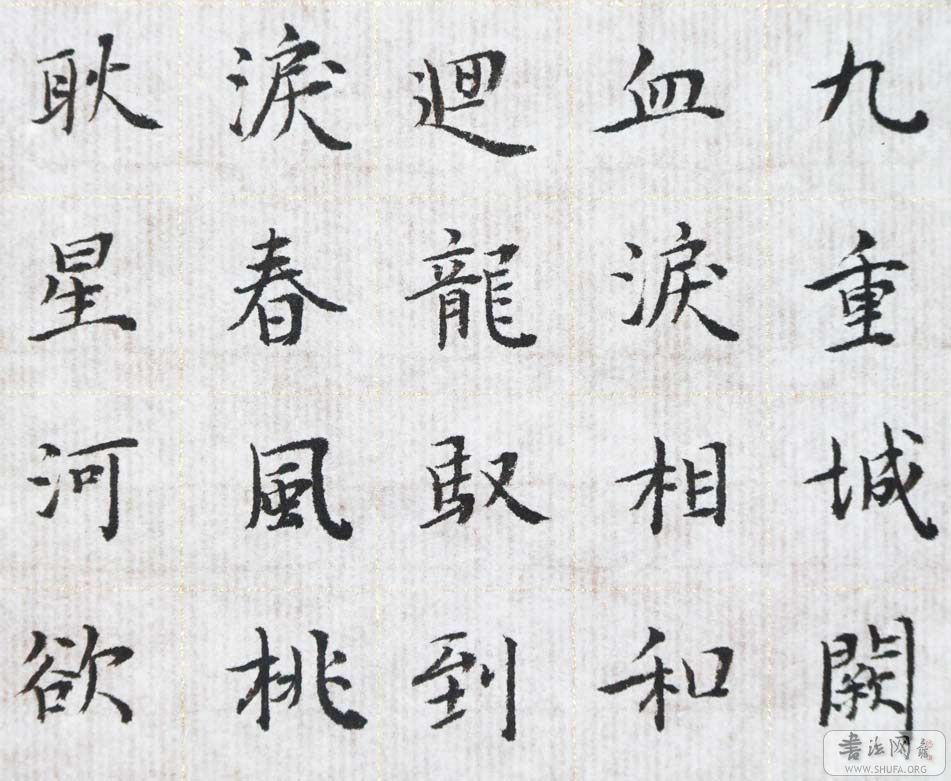 九重城闕
血淚相和
迴龍馭到
淚春風桃
耿星河欲
書法网
WWW.SHUFA.ORG